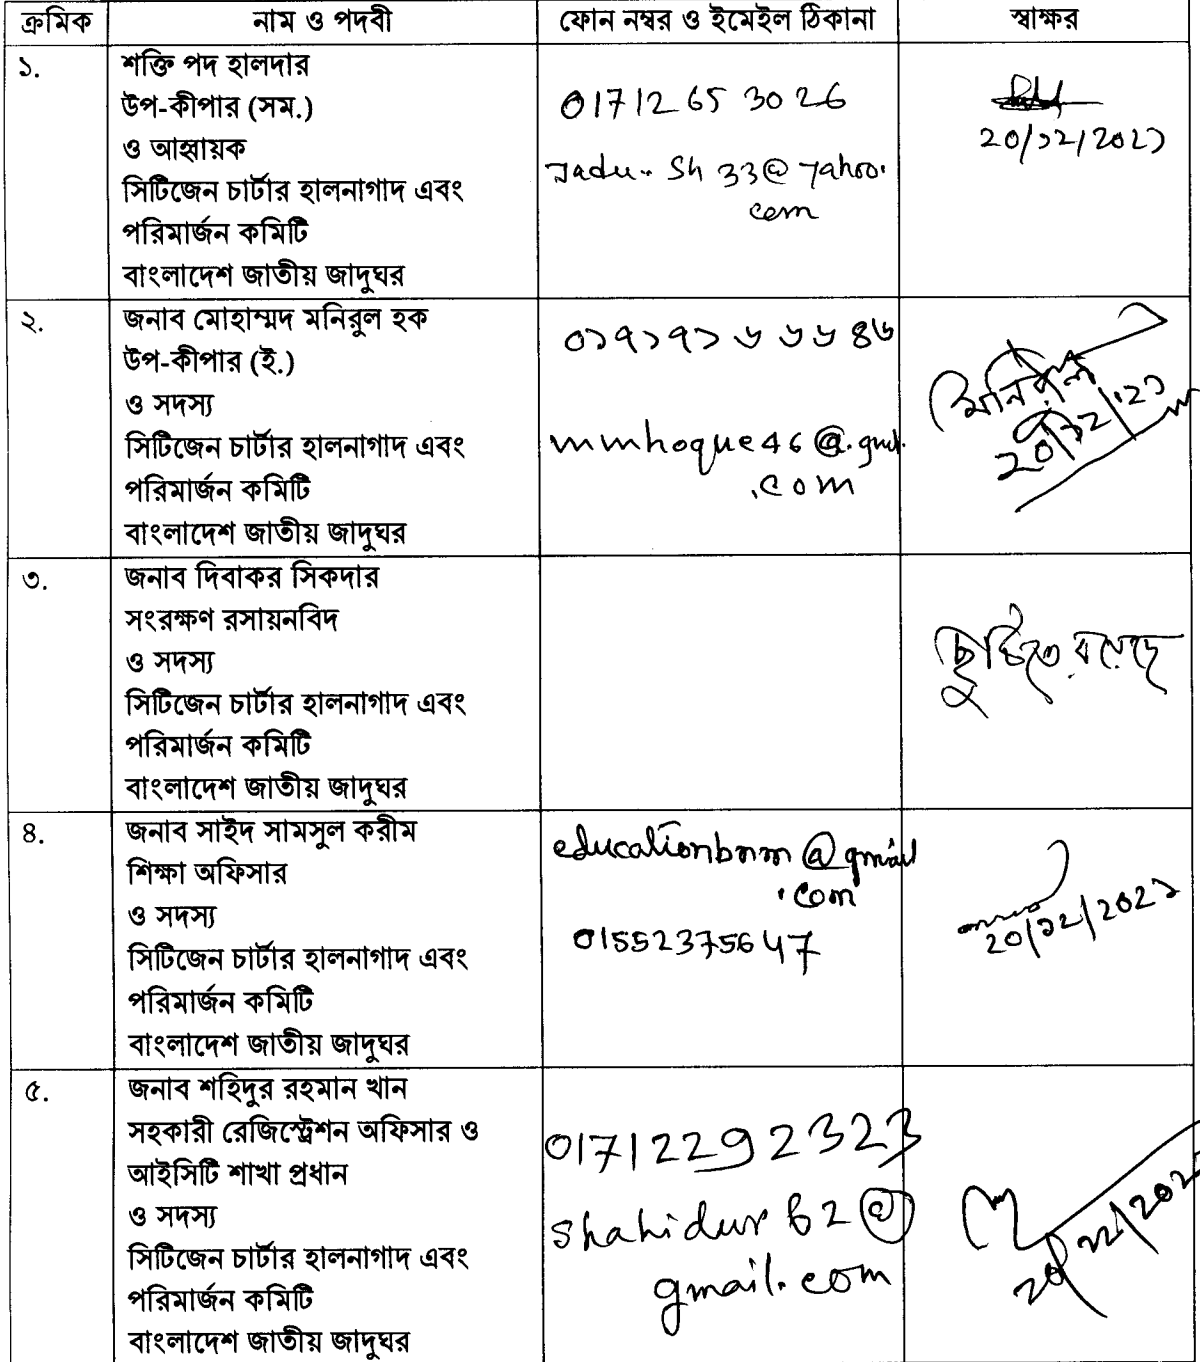 ক্রমিক নাম ও পদবী ফোন নম্বর ও ইমেইল ঠিকানা স্বাক্ষর
১.
শক্তি পদ হালদার
উপ-কীপার (সম.)
ও আহ্বায়ক
সিটিজেন চার্টার হালনাগাদ এবং
পরিমার্জন কমিটি
বাংলাদেশ জাতীয় জাদুঘর
01712653026
cem
20/১2/202১
২.
জনাব মোহাম্মদ মনিরুল হক
উপ-কীপার (ই.)
ও সদস্য
সিটিজেন চার্টার হালনাগাদ এবং
পরিমার্জন কমিটি
বাংলাদেশ জাতীয় জাদুঘর
0১৭১৭১৬৬৬৪৬
mmhoque46@
.com
মনিরুল
20/১2/'2১
৩.
জনাব দিবাকর সিকদার
সংরক্ষণ রসায়নবিদ
ও সদস্য
সিটিজেন চার্টার হালনাগাদ এবং
পরিমার্জন কমিটি
বাংলাদেশ জাতীয় জাদুঘর
ছুটিতে রয়েছে
৪.
জনাব সাইদ সামসুল করীম
শিক্ষা অফিসার
ও সদস্য
সিটিজেন চার্টার হালনাগাদ এবং
পরিমার্জন কমিটি
বাংলাদেশ জাতীয় জাদুঘর
educationbnm@gmail
.com
01552375647
20/১2/202১
৫.
জনাব শহিদুর রহমান খান
সহকারী রেজিস্ট্রেশন অফিসার ও
আইসিটি শাখা প্রধান
ও সদস্য
সিটিজেন চার্টার হালনাগাদ এবং
পরিমার্জন কমিটি
বাংলাদেশ জাতীয় জাদুঘর
01712292323
shahidur62@
gmail.com